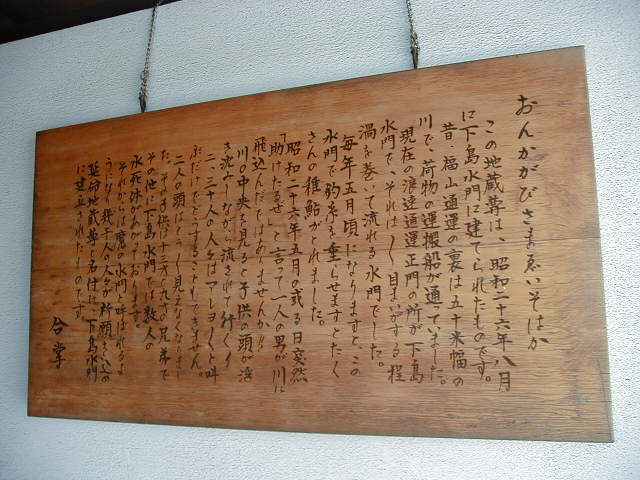 おんかがびさまゑいそはか
この地蔵尊は、昭和二十六年八月
に下島水門に建てられたものです。
昔、福山通運の裏は五十米幅の
川で、荷物の運搬船が通ていました。
現在の浪速通運正門の所が下島
水門で、それはく目まいがする程
渦を巻いて流れる水門でした。
毎年五月頃になりますと、この
水門で釣糸を垂らせますとたく
さんの稚鮎がとれました。
昭和二十六年五月の或る日突然
「助けたるぞ」と言って一人の男が川に
飛込んだではありませんか。
川の中央を見ると子供の頭が浮
き沈みしながら流されて行くく
二、三十人の人々はアレヨくと叫
ぶだけでどうすることもできません。
二人の頭はとうく見えなくなりまし
た。その子供は十三才と九才の兄弟で
その他に下島水門では数人の
水死体があがております。
それからは魔の水門と呼ばれるよ
うになり幾千人の人々が祈願をこめ
延命地蔵尊と名付けに下島水門
に建立されたものです。
合掌